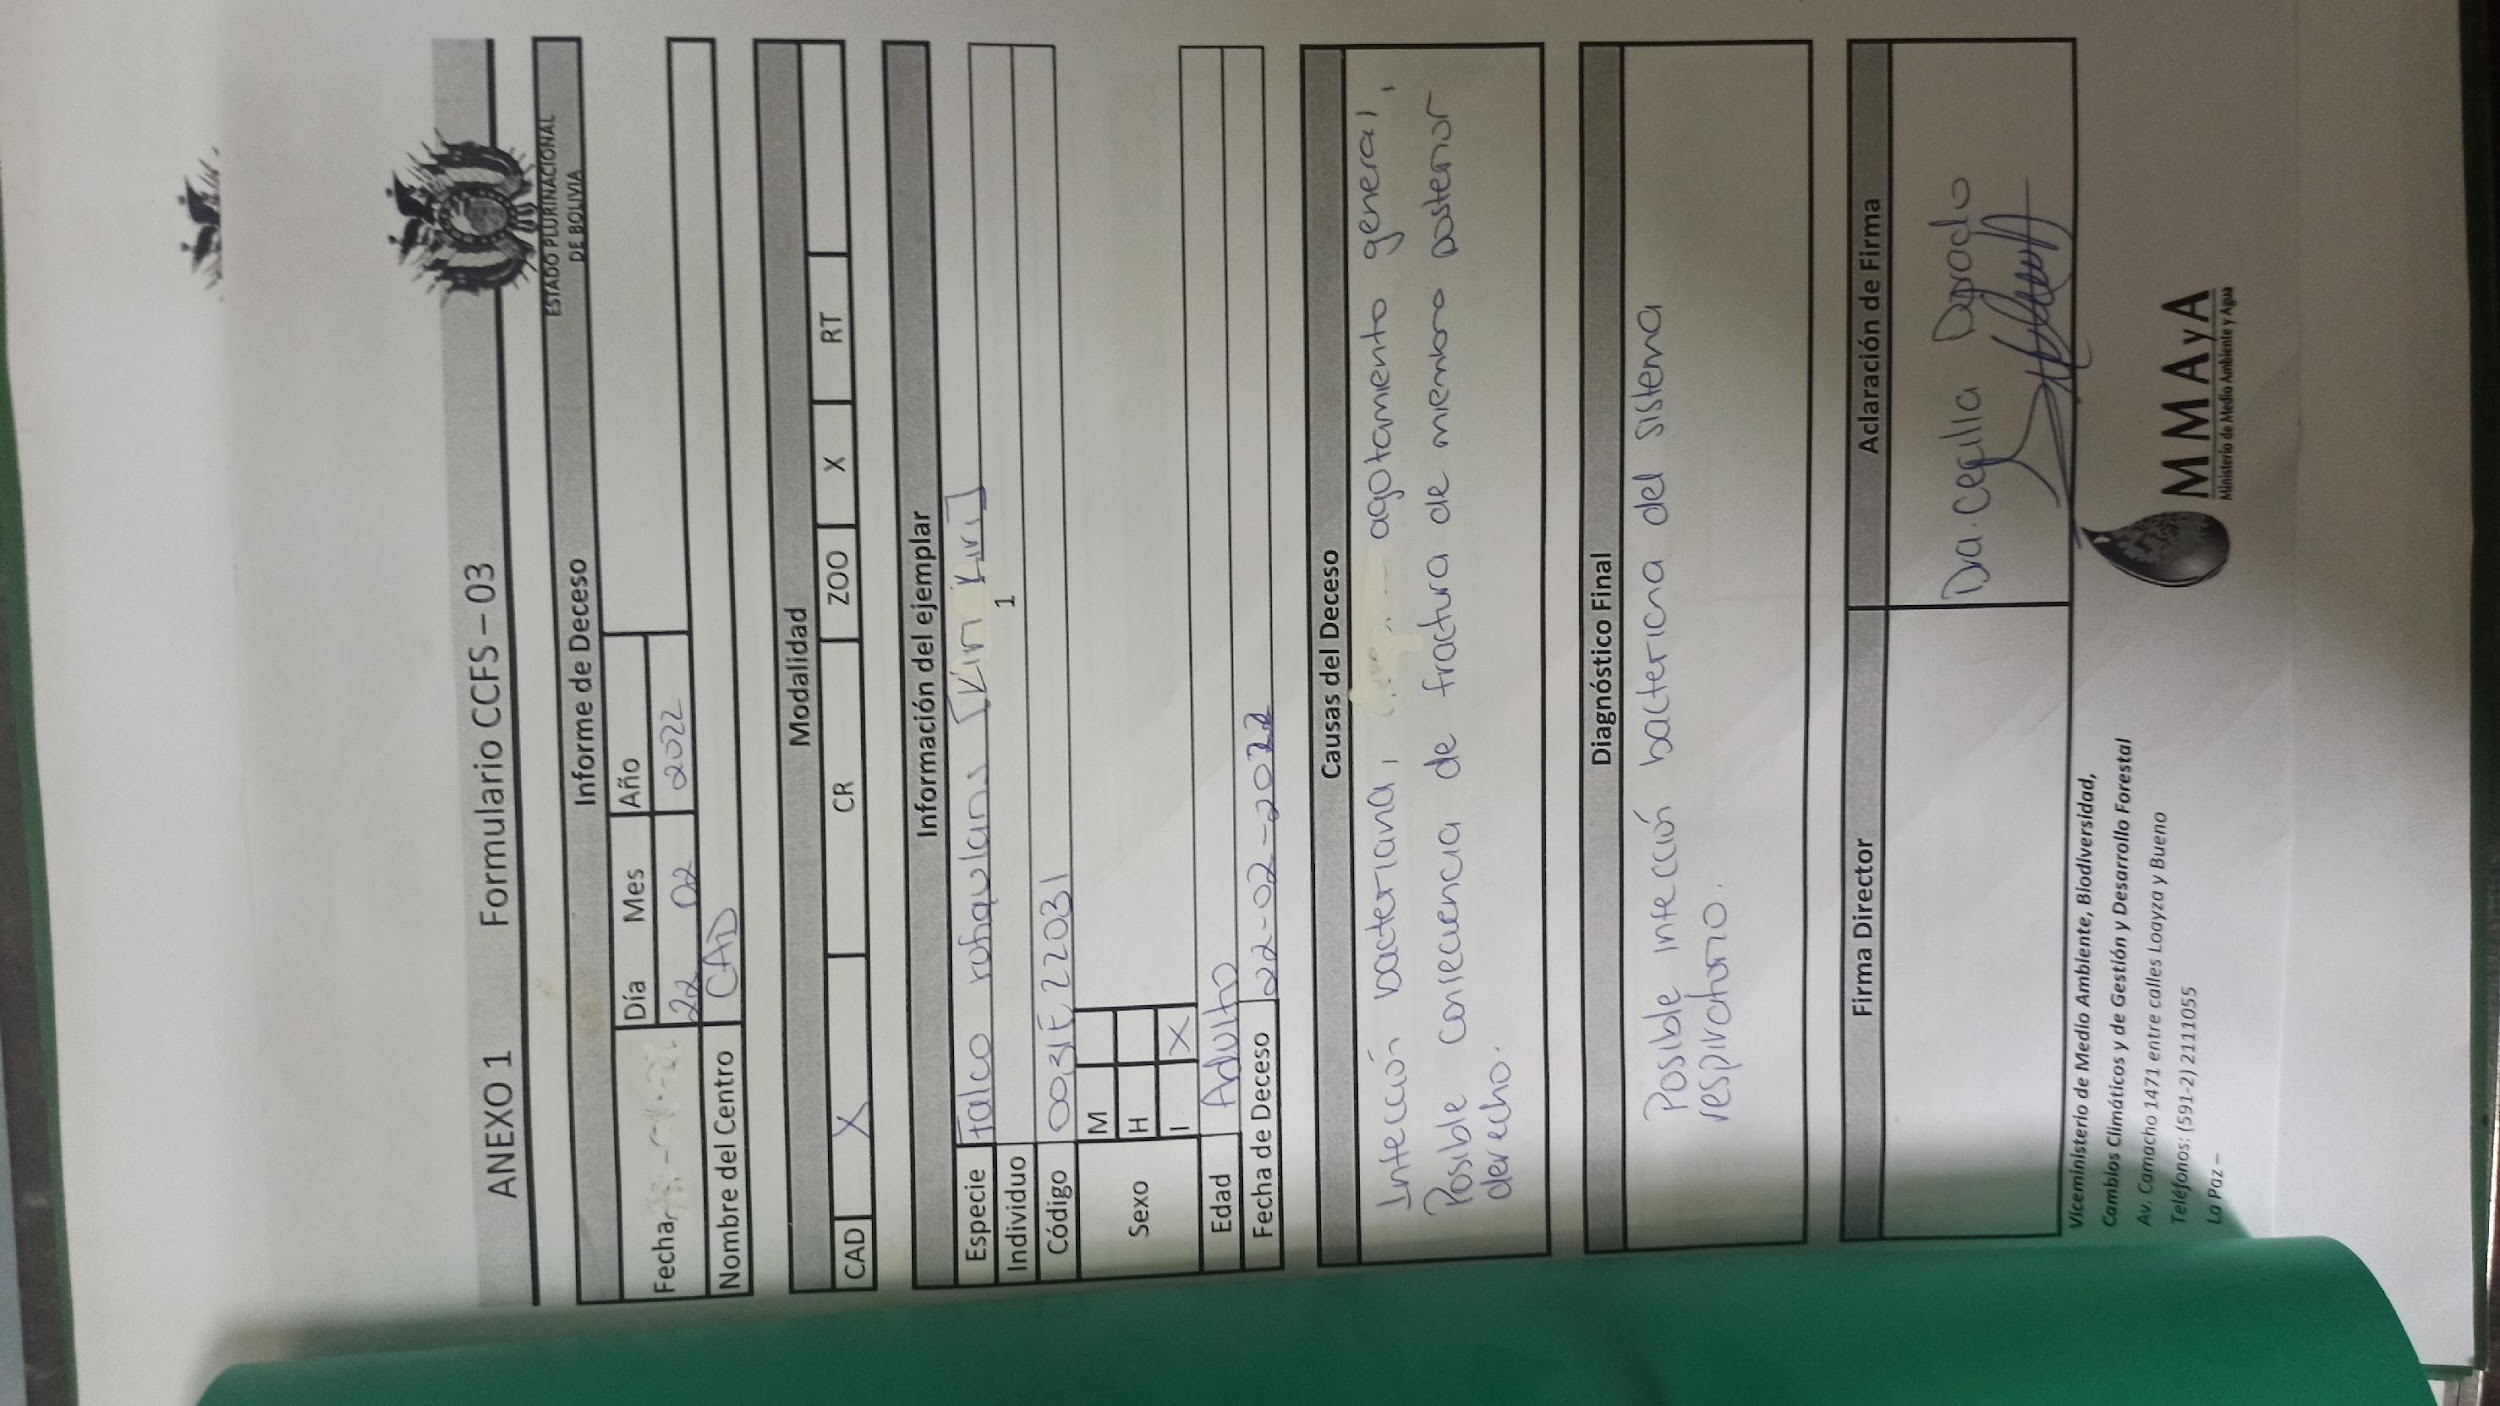 ESTADO PLURINACIONAL
DE BOLIVIA
ANEXO 1 Formulario CCFS – 03
Informe de Deceso
Fecha Día Mes Año
22 02 2022
Nombre del Centro CAD
Modalidad
CAD X CR ZOO X RT
Información del ejemplar
Especie Falco rufigularis [Kiri Kiri]
Individuo 1
Código 0031E22031
Sexo M
H
I X
Edad Adulto
Fecha de Deceso 22-02-2022
Causas del Deceso
Infección bacteriana, agotamiento general,
Posible consecuencia de fractura de miembro posterior
derecho.
Diagnóstico Final
Posible infección bacteriana del sistema
respiratorio.
Firma Director Aclaración de Firma
Dra.
Viceministerio de Medio Ambiente, Biodiversidad,
Cambios Climáticos y de Gestión y Desarrollo Forestal
Av. Camacho 1471 entre calles Loayza y Bueno
Teléfonos: (591-2) 2111055
La Paz –
MMAyA
Ministerio de Medio Ambiente y Agua